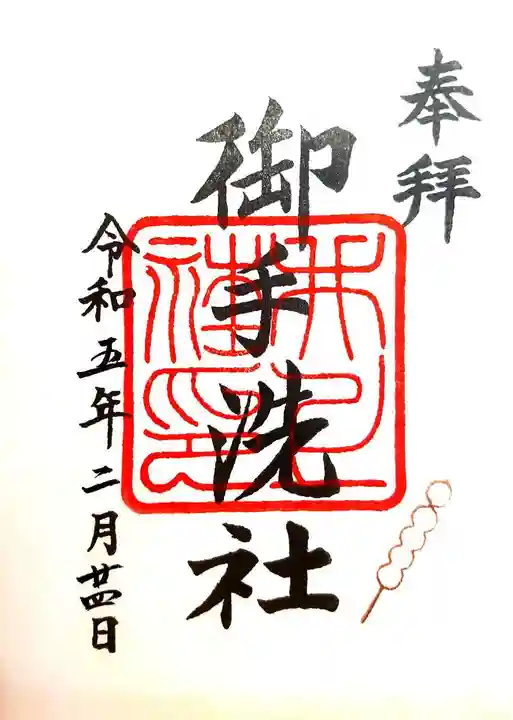 奉拝
御手洗社
令和五年二月廿四日